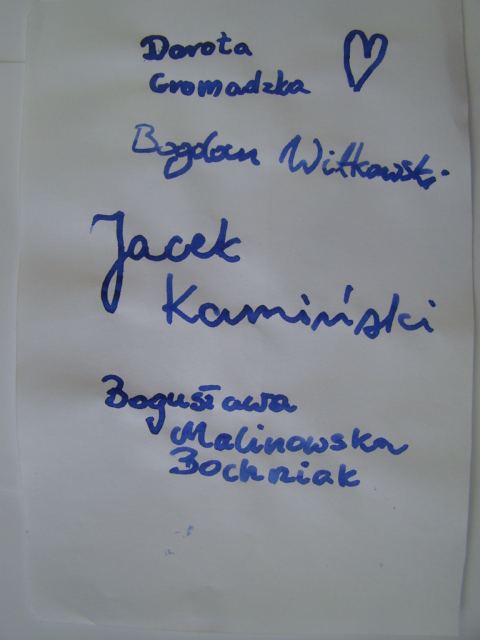 Dorota
Gromadzka
Bogdan Witkowski
Jacek
Kamiński
Bogusława
Malinowska
Bochniak